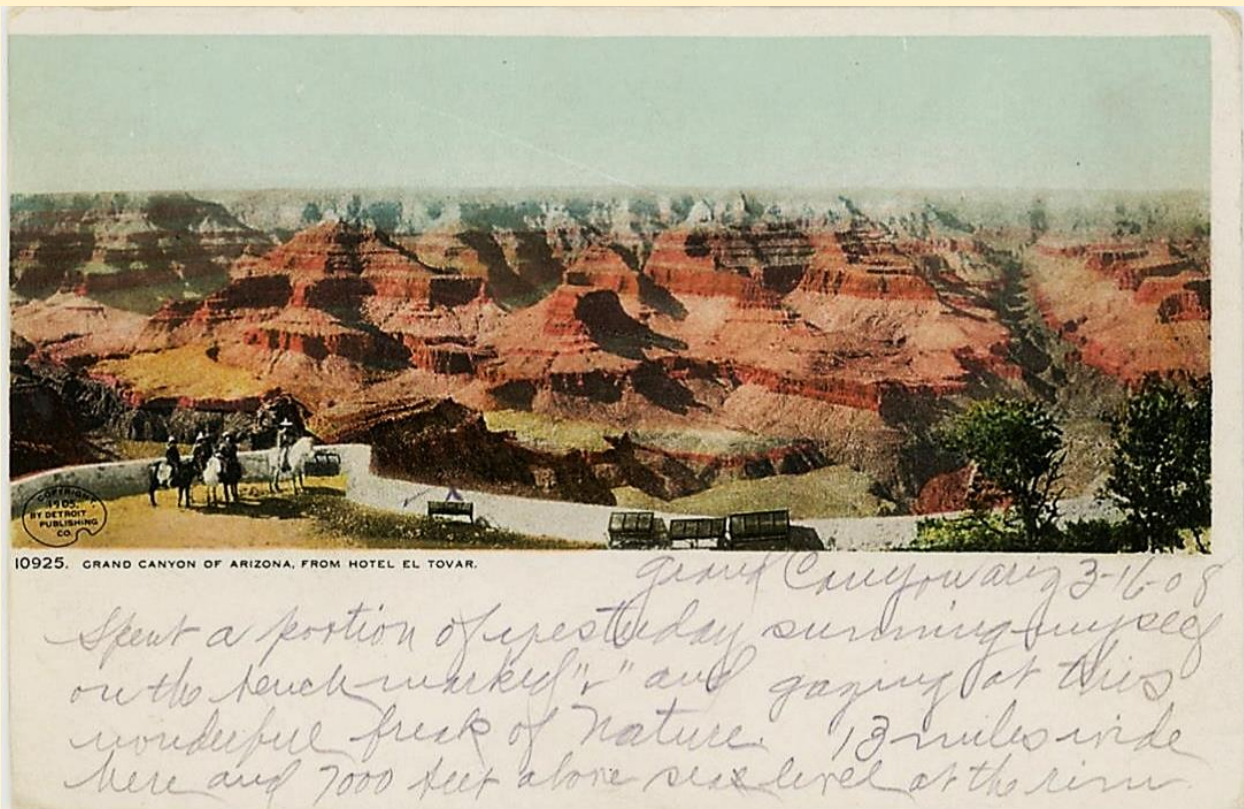 COPYRIGHT
1905.
BY DETROIT
PUBLISHING
CO.
10925. GRAND CANYON OF ARIZONA, FROM HOTEL EL TOVAR.
Grand Canyon Ariz 3-16-08
Spent a portion of yesterday sunning myself
on the bench marked "v" and gazing at this
wonderful freak of Nature. 13 miles wide
here and 7000 feet above sea level at the rim.